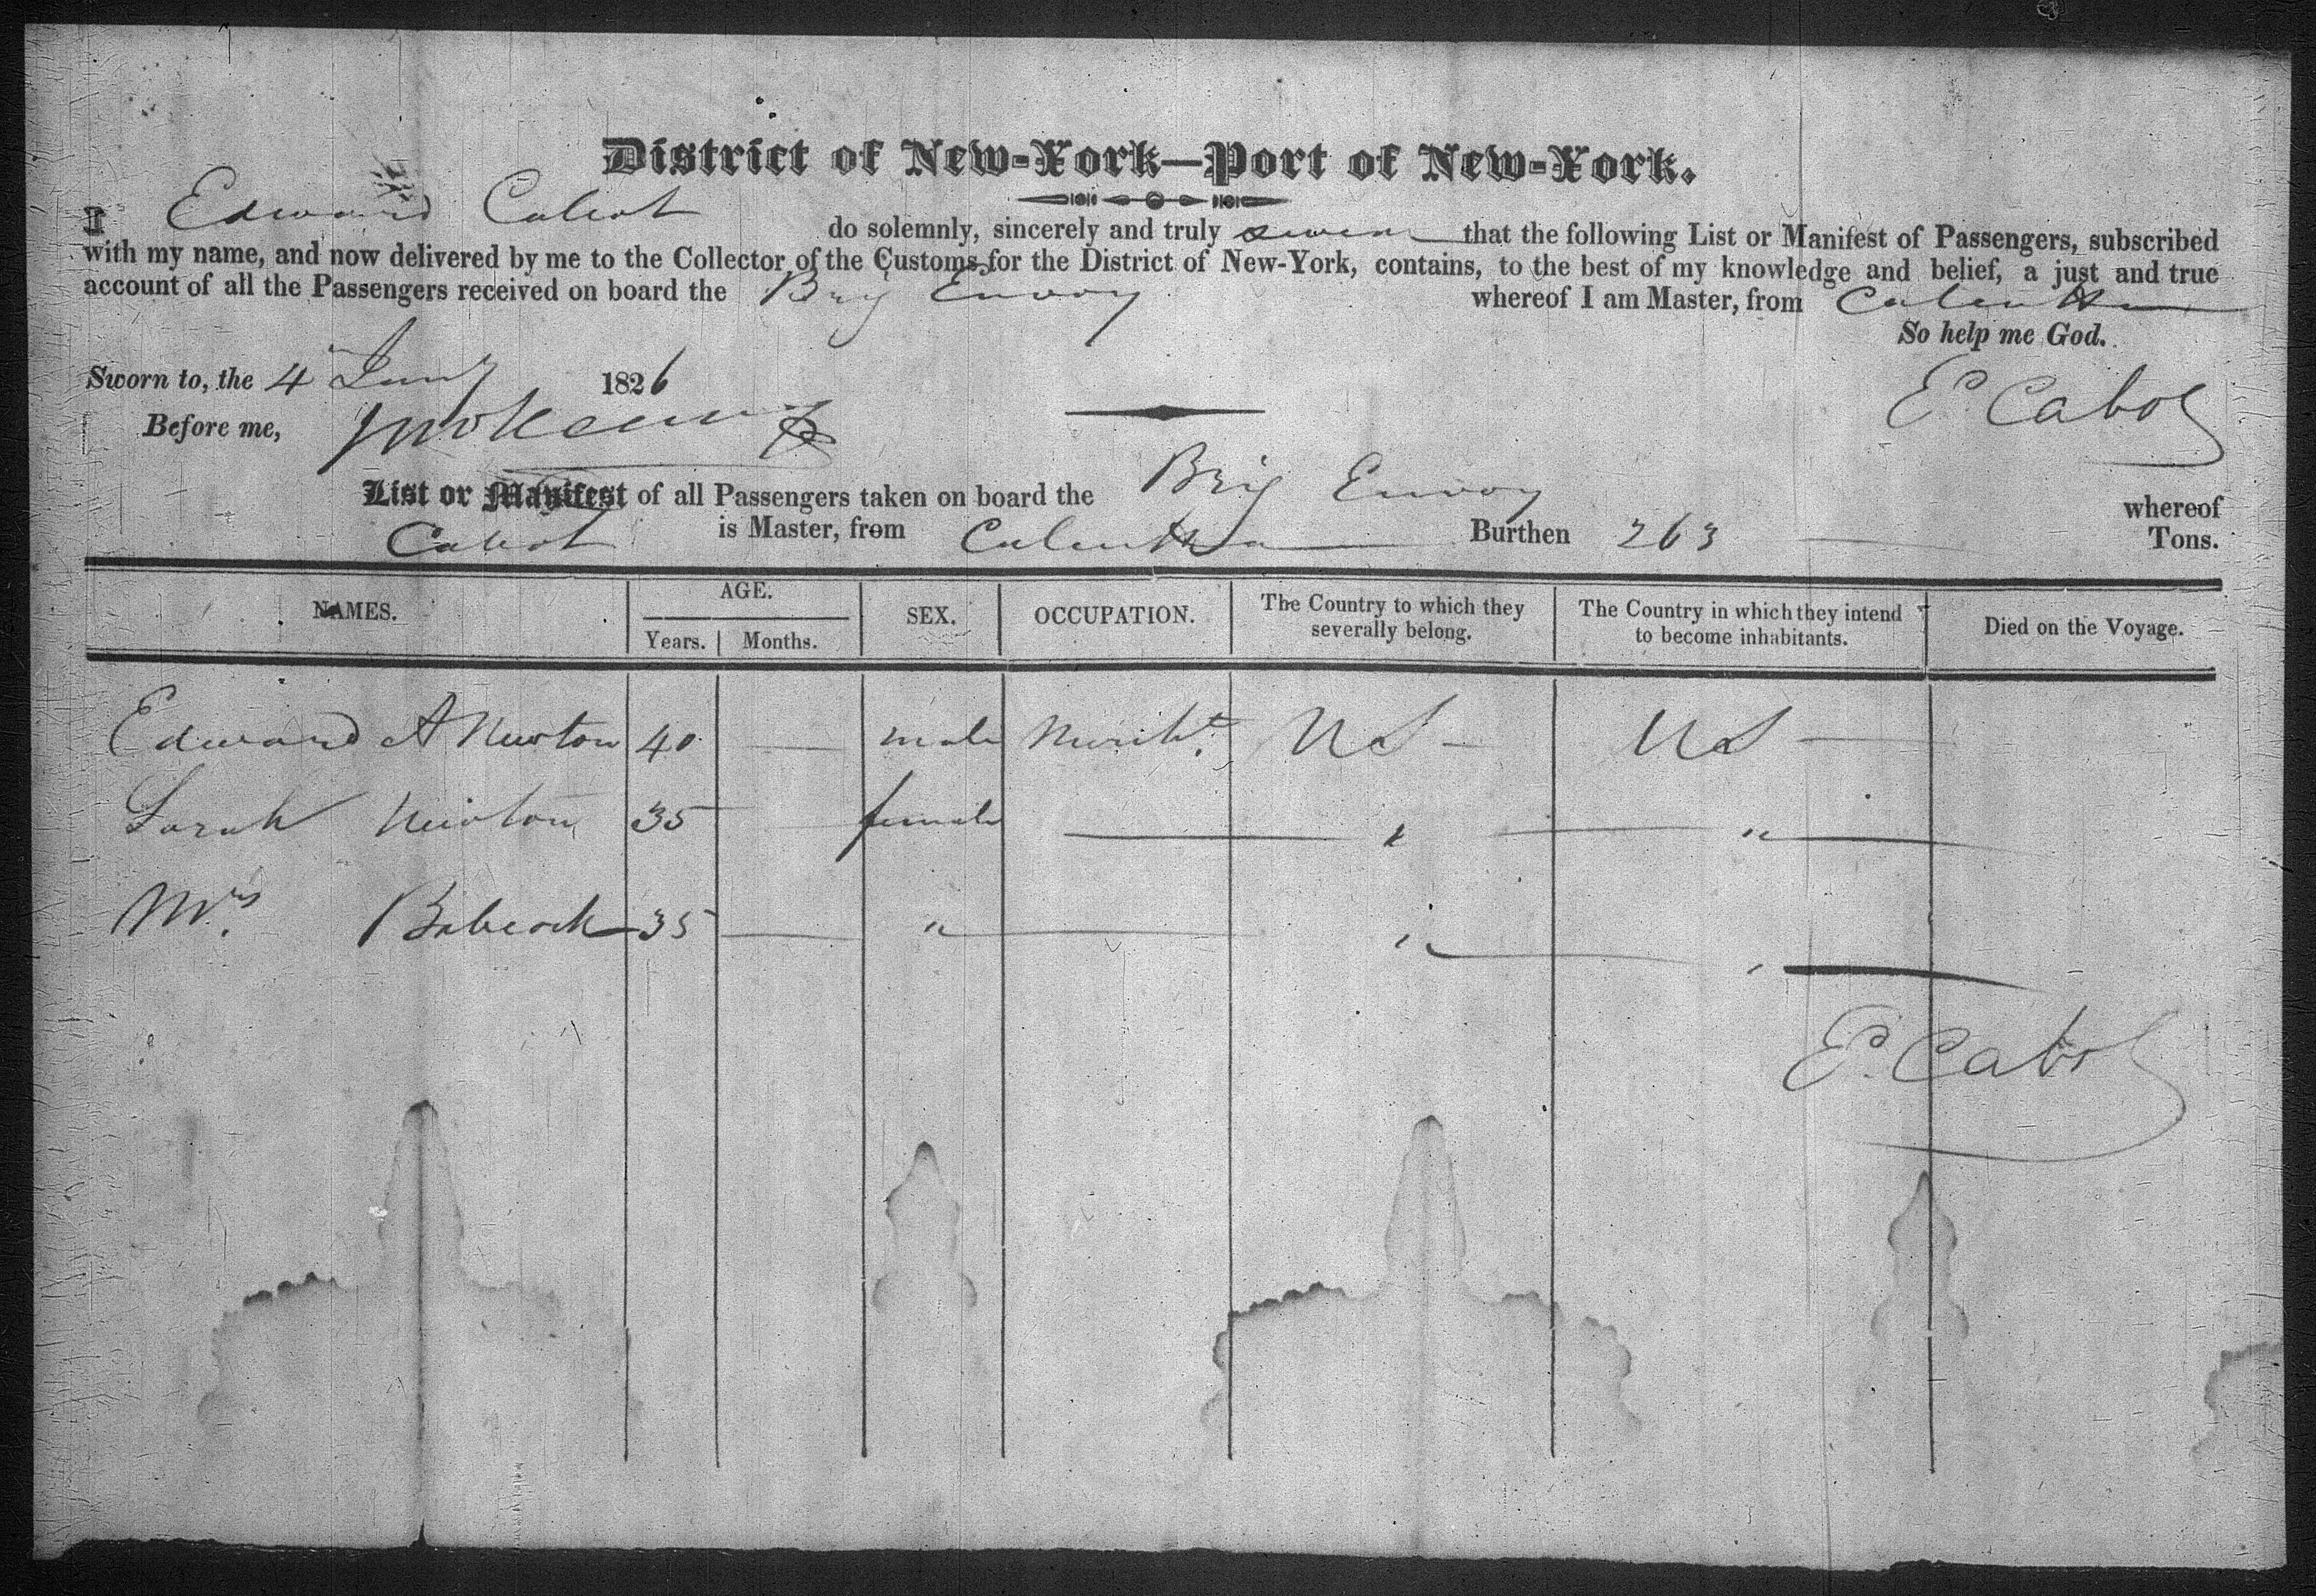 District of New-York—Port of New-York.
I Edward Cabot do solemnly, sincerely and truly swear that the following List or Manifest of Passengers, subscribed
with my name, and now delivered by me to the Collector of the Customs for the District of New-York, contains, to the best of my knowledge and belief, a just and true
account of all the Passengers received on board the Brig Envoy whereof I am Master, from Calcutta
So help me God.
Sworn to, the 4 1826
Before me,
E. Cabot
List or Manifest of all Passengers taken on board the Brig Envoy whereof
Cabot is Master, from Calcutta Burthen 263 Tons.
NAMES. AGE. Years. Months. SEX. OCCUPATION. The Country to which they severally belong. The Country in which they intend to become inhabitants. Died on the Voyage.
Edward A Newton 40 male Mercht. US US
Sarah Newton 35 female " "
Mrs. Babcock 35 " " "
E. Cabot